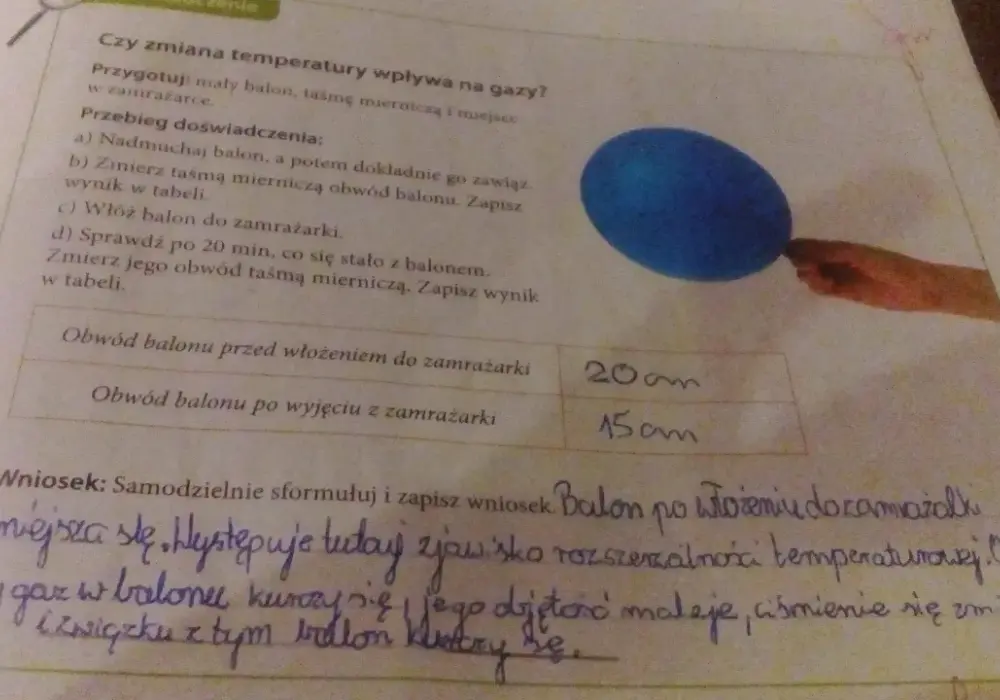 Czy zmiana temperatury wpływa na gazy?
Przygotuj: mały balon, taśmę mierniczą i miejsce
w zamrażarce.
Przebieg doświadczenia:
a) Nadmuchaj balon, a potem dokładnie go zawiąż.
b) Zmierz taśmą mierniczą obwód balonu. Zapisz
wynik w tabeli.
c) Włóż balon do zamrażarki.
d) Sprawdź po 20 min, co się stało z balonem.
Zmierz jego obwód taśmą mierniczą. Zapisz wynik
w tabeli.
Obwód balonu przed włożeniem do zamrażarki 20 cm
Obwód balonu po wyjęciu z zamrażarki 15 cm
Wniosek: Samodzielnie sformułuj i zapisz wniosek. Balon po włożeniu do zamrażalki
mniejsza się. Występuje tutaj zjawisko rozszerzalności temperaturowej.
gaz w balonie kurczy się, jego objętość maleje, ciśnienie się zmi
i związku z tym balon kurczy się.